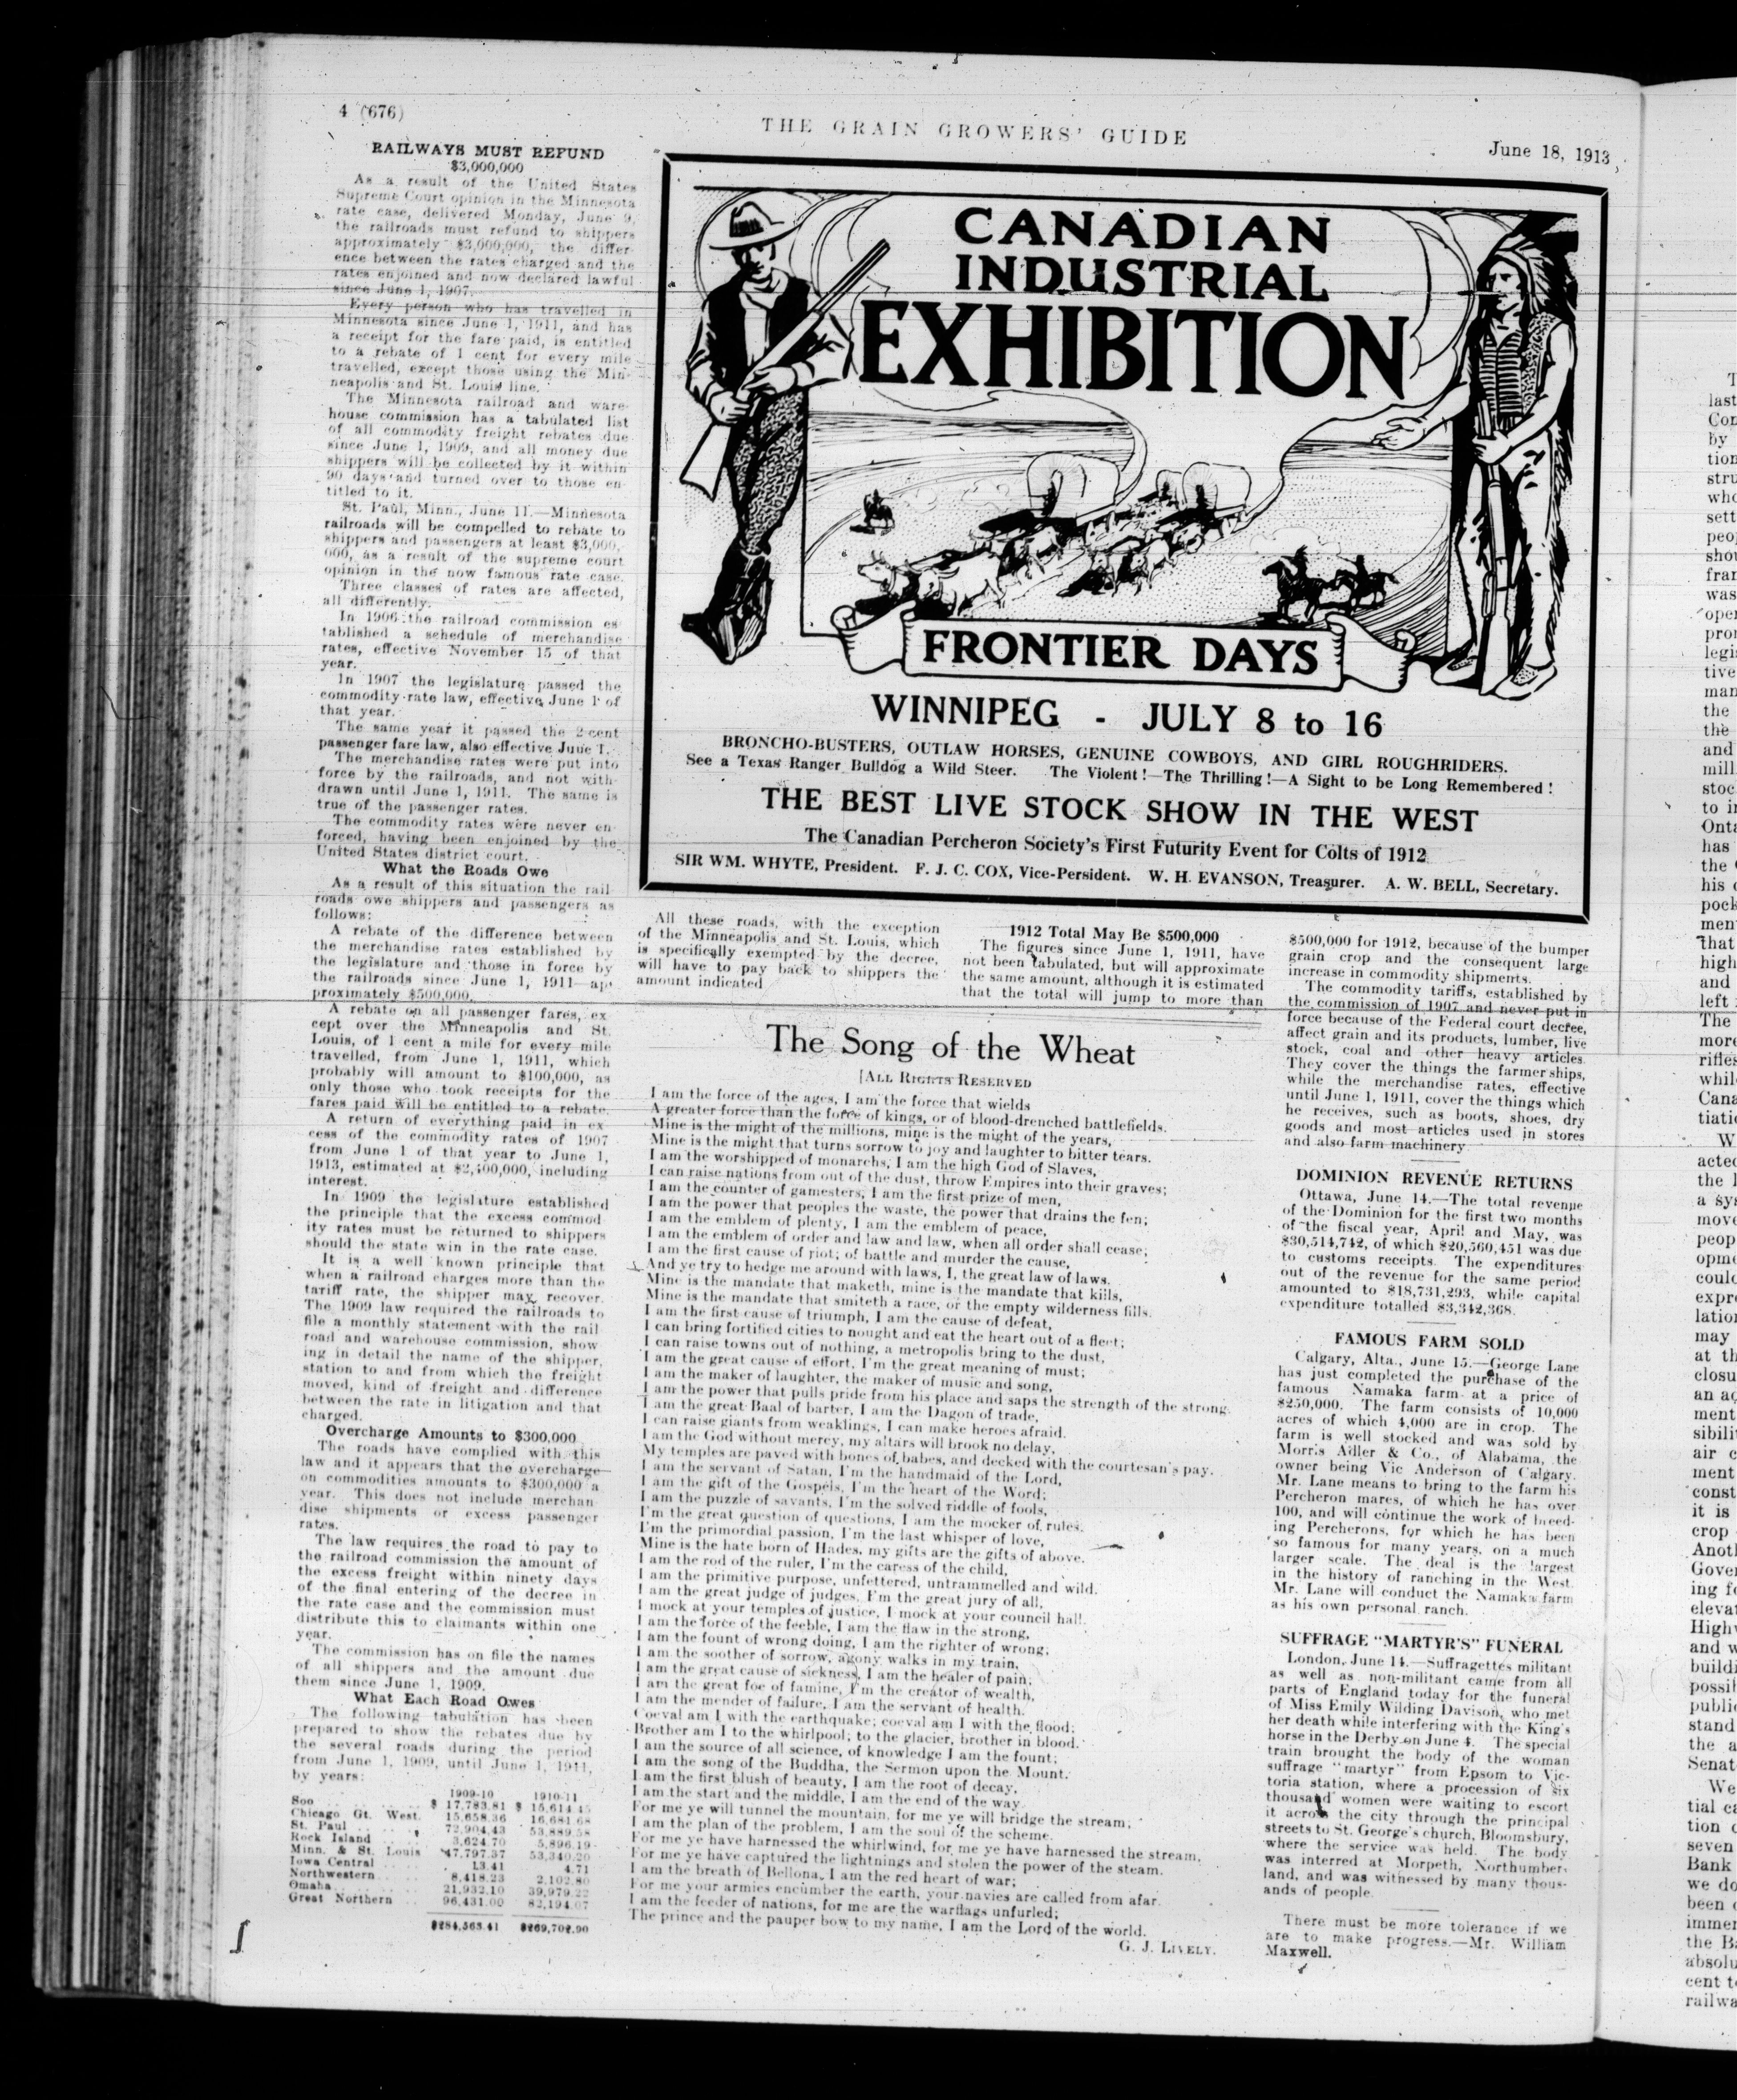 4 (676)
THE GRAIN GROWERS' GUIDE
June 18, 1913
RAILWAYS MUST REFUND
$3,000,000
As a result of the United States
Supreme Court opinion in the Minnesota
rate case, delivered Monday, June 9,
the railroads must refund to shippers
approximately $3,000,000, the differ-
ence between the rates charged and the
rates enjoined and now declared lawful
since June 1, 1907.
Every person who has travelled in
Minnesota since June 1, 1911, and has
a receipt for the fare paid, is entitled
to a rebate of 1 cent for every mile
travelled, except those using the Min-
neapolis and St. Louis line.
The Minnesota railroad and ware-
house commission has a tabulated list
of all commodity freight rebates due
since June 1, 1909, and all money due
shippers will be collected by it within
90 days and turned over to those en-
titled to it.
St. Paul, Minn., June 11.—Minnesota
railroads will be compelled to rebate to
shippers and passengers at least $3,000,
000, as a result of the supreme court
opinion in the now famous rate case.
Three classes of rates are affected,
all differently.
In 1906 the railroad commission es
tablished a schedule of merchandise
rates, effective November 15 of that
year.
In 1907 the legislature passed the
commodity rate law, effective June 1 of
that year.
The same year it passed the 2-cent
passenger fare law, also effective June 1.
The merchandise rates were put into
force by the railroads, and not with-
drawn until June 1, 1911. The same is
true of the passenger rates.
The commodity rates were never en
forced, having been enjoined by the
United States district court.
What the Roads Owe
As a result of this situation the rail
roads owe shippers and passengers as
follows:
A rebate of the difference between
the merchandise rates established by
the legislature and those in force by
the railroads since June 1, 1911—ap
proximately $500,000.
A rebate on all passenger fares, ex
cept over the Minneapolis and St.
Louis, of 1 cent a mile for every mile
travelled, from June 1, 1911, which
probably will amount to $100,000, as
only those who took receipts for the
fares paid will be entitled to a rebate.
A return of everything paid in ex
cess of the commodity rates of 1907
from June 1 of that year to June 1,
1913, estimated at $2,400,000, including
interest.
In 1909 the legislature established
the principle that the excess commod
ity rates must be returned to shippers
should the state win in the rate case.
It is a well known principle that
when a railroad charges more than the
tariff rate, the shipper may recover.
The 1909 law required the railroads to
file a monthly statement with the rail
road and warehouse commission, show
ing in detail the name of the shipper,
station to and from which the freight
moved, kind of freight and difference
between the rate in litigation and that
charged.
Overcharge Amounts to $300,000
The roads have complied with this
law and it appears that the overcharge
on commodities amounts to $300,000 a
year. This does not include merchan
dise shipments or excess passenger
rates.
The law requires the road to pay to
the railroad commission the amount of
the excess freight within ninety days
of the final entering of the decree in
the rate case and the commission must
distribute this to claimants within one
year.
The commission has on file the names
of all shippers and the amount due
them since June 1, 1909.
What Each Road Owes
The following tabulation has been
prepared to show the rebates due by
the several roads during the period
from June 1, 1909, until June 1, 1911,
by years:
1909-10 1910-11
Soo $ 17,783.81 $ 15,614.45
Chicago Gt. West. 15,658.36 16,681.68
St. Paul 72,904.43 53,889.58
Rock Island 3,624.70 5,896.19
Minn. & St. Louis 47,797.37 53,340.20
Iowa Central 13.41 4.71
Northwestern 8,418.23 2,102.80
Omaha 21,932.10 39,979.22
Great Northern 96,431.00 82,194.07
$284,563.41 $269,702.90
CANADIAN
INDUSTRIAL
EXHIBITION
FRONTIER DAYS
WINNIPEG - JULY 8 to 16
BRONCHO-BUSTERS, OUTLAW HORSES, GENUINE COWBOYS, AND GIRL ROUGHRIDERS.
See a Texas Ranger Bulldog a Wild Steer. The Violent!—The Thrilling!—A Sight to be Long Remembered!
THE BEST LIVE STOCK SHOW IN THE WEST
The Canadian Percheron Society's First Futurity Event for Colts of 1912
SIR WM. WHYTE, President. F. J. C. COX, Vice-Persident. W. H. EVANSON, Treasurer. A. W. BELL, Secretary.
All these roads, with the exception
of the Minneapolis and St. Louis, which
is specifically exempted by the decree,
will have to pay back to shippers the
amount indicated
1912 Total May Be $500,000
The figures since June 1, 1911, have
not been tabulated, but will approximate
the same amount, although it is estimated
that the total will jump to more than
$500,000 for 1912, because of the bumper
grain crop and the consequent large
increase in commodity shipments.
The commodity tariffs, established by
the commission of 1907 and never put in
force because of the Federal court decree,
affect grain and its products, lumber, live
stock, coal and other heavy articles.
They cover the things the farmer ships,
while the merchandise rates, effective
until June 1, 1911, cover the things which
he receives, such as boots, shoes, dry
goods and most articles used in stores
and also farm machinery.
The Song of the Wheat
[ALL RIGHTS RESERVED
I am the force of the ages, I am the force that wields
A greater force than the force of kings, or of blood-drenched battlefields.
Mine is the might of the millions, mine is the might of the years,
Mine is the might that turns sorrow to joy and laughter to bitter tears.
I am the worshipped of monarchs, I am the high God of Slaves,
I can raise nations from out of the dust, throw Empires into their graves;
I am the counter of gamesters, I am the first prize of men,
I am the power that peoples the waste, the power that drains the fen;
I am the emblem of plenty, I am the emblem of peace,
I am the emblem of order and law and law, when all order shall cease;
I am the first cause of riot; of battle and murder the cause,
And ye try to hedge me around with laws, I, the great law of laws.
Mine is the mandate that maketh, mine is the mandate that kills,
Mine is the mandate that smiteth a race, or the empty wilderness fills.
I am the first cause of triumph, I am the cause of defeat,
I can bring fortified cities to nought and eat the heart out of a fleet;
I can raise towns out of nothing, a metropolis bring to the dust,
I am the great cause of effort, I'm the great meaning of must;
I am the maker of laughter, the maker of music and song,
I am the power that pulls pride from his place and saps the strength of the strong.
I am the great Baal of barter, I am the Dagon of trade,
I can raise giants from weaklings, I can make heroes afraid.
I am the God without mercy, my altars will brook no delay,
My temples are paved with bones of babes, and decked with the courtesan's pay.
I am the servant of Satan, I'm the handmaid of the Lord,
I am the gift of the Gospels, I'm the heart of the Word;
I am the puzzle of savants, I'm the solved riddle of fools,
I'm the great question of questions, I am the mocker of rules.
I'm the primordial passion, I'm the last whisper of love,
Mine is the hate born of Hades, my gifts are the gifts of above.
I am the rod of the ruler, I'm the caress of the child,
I am the primitive purpose, unfettered, untrammelled and wild.
I am the great judge of judges, I'm the great jury of all,
I mock at your temples of justice, I mock at your council hall.
I am the force of the feeble, I am the flaw in the strong,
I am the fount of wrong doing, I am the righter of wrong;
I am the soother of sorrow, agony walks in my train,
I am the great cause of sickness, I am the healer of pain;
I am the great foe of famine, I'm the creator of wealth,
I am the mender of failure, I am the servant of health.
Coeval am I with the earthquake; coeval am I with the flood;
Brother am I to the whirlpool; to the glacier, brother in blood.
I am the source of all science, of knowledge I am the fount;
I am the song of the Buddha, the Sermon upon the Mount.
I am the first blush of beauty, I am the root of decay,
I am the start and the middle, I am the end of the way.
For me ye will tunnel the mountain, for me ye will bridge the stream,
I am the plan of the problem, I am the soul of the scheme.
For me ye have harnessed the whirlwind, for me ye have harnessed the stream,
For me ye have captured the lightnings and stolen the power of the steam.
I am the breath of Bellona, I am the red heart of war;
For me your armies encumber the earth, your navies are called from afar.
I am the feeder of nations, for me are the warflags unfurled;
The prince and the pauper bow to my name, I am the Lord of the world.
G. J. LIVELY.
DOMINION REVENUE RETURNS
Ottawa, June 14.—The total revenue
of the Dominion for the first two months
of the fiscal year, April and May, was
$30,514,742, of which $20,560,451 was due
to customs receipts. The expenditures
out of the revenue for the same period
amounted to $18,731,293, while capital
expenditure totalled $3,342,368.
FAMOUS FARM SOLD
Calgary, Alta., June 15.—George Lane
has just completed the purchase of the
famous Namaka farm at a price of
$250,000. The farm consists of 10,000
acres of which 4,000 are in crop. The
farm is well stocked and was sold by
Morris Adler & Co., of Alabama, the
owner being Vic Anderson of Calgary.
Mr. Lane means to bring to the farm his
Percheron mares, of which he has over
100, and will continue the work of breed-
ing Percherons, for which he has been
so famous for many years, on a much
larger scale. The deal is the largest
in the history of ranching in the West.
Mr. Lane will conduct the Namaka farm
as his own personal ranch.
SUFFRAGE "MARTYR'S" FUNERAL
London, June 14.—Suffragettes militant
as well as non-militant came from all
parts of England today for the funeral
of Miss Emily Wilding Davison, who met
her death while interfering with the King's
horse in the Derby on June 4. The special
train brought the body of the woman
suffrage "martyr" from Epsom to Vic-
toria station, where a procession of six
thousand women were waiting to escort
it across the city through the principal
streets to St. George's church, Bloomsbury,
where the service was held. The body
was interred at Morpeth, Northumber-
land, and was witnessed by many thous-
ands of people.
There must be more tolerance if we
are to make progress.—Mr. William
Maxwell.